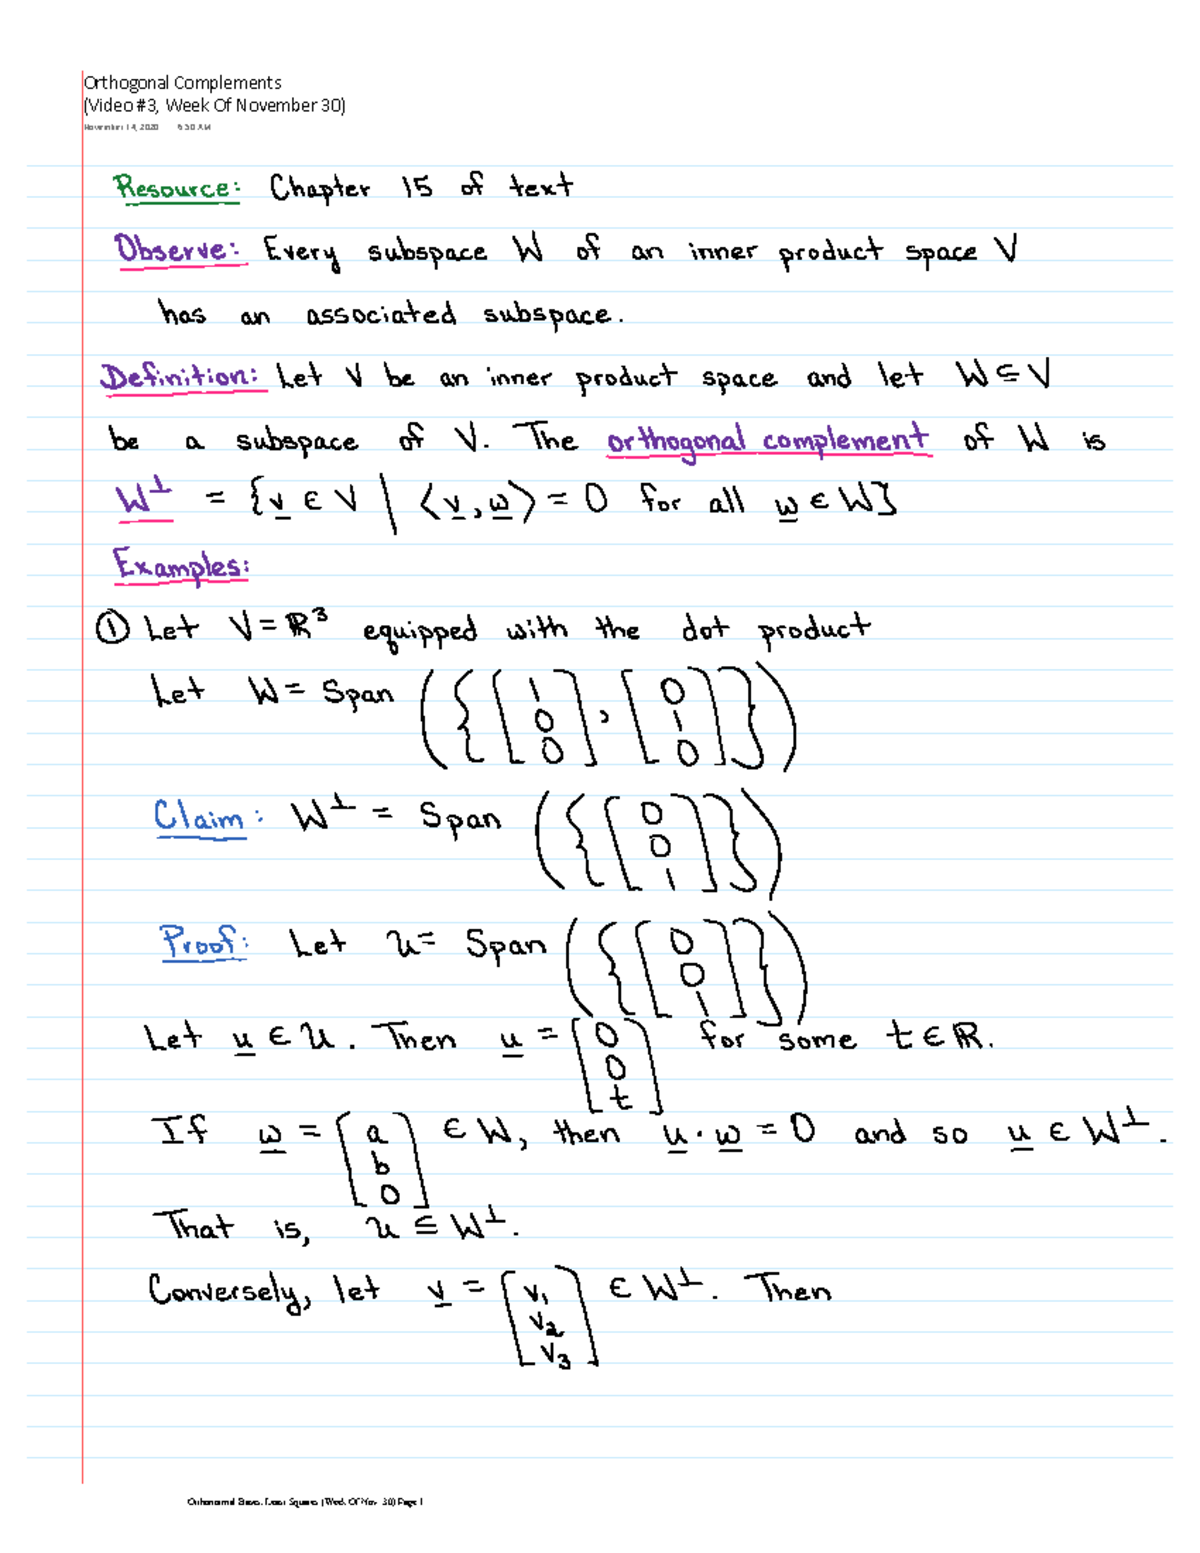 Orthogonal Complements
(Video #3, Week Of November 30)
November 14, 2020 6:30 AM
Resource: Chapter 15 of text
Observe: Every subspace W of an inner product space V
has an associated subspace.
Definition: Let V be an inner product space and let W ⊆ V
be a subspace of V. The orthogonal complement of W is
W⊥ = {v ∈ V | ⟨v, w⟩ = 0 for all w ∈ W}
Examples:
① Let V = ℝ³ equipped with the dot product
Let W = Span ({[1 0 0], [0 1 0]})
Claim: W⊥ = Span ({[0 0 1]})
Proof: Let U = Span ({[0 0 1]})
Let u ∈ U. Then u = [0 0 t] for some t ∈ ℝ.
If w = [a b 0] ∈ W, then u · w = 0 and so u ∈ W⊥.
That is, U ⊆ W⊥.
Conversely, let v = [v₁ v₂ v₃] ∈ W⊥. Then
Orthonormal Bases, Least Squares (Week Of Nov 30) Page 1